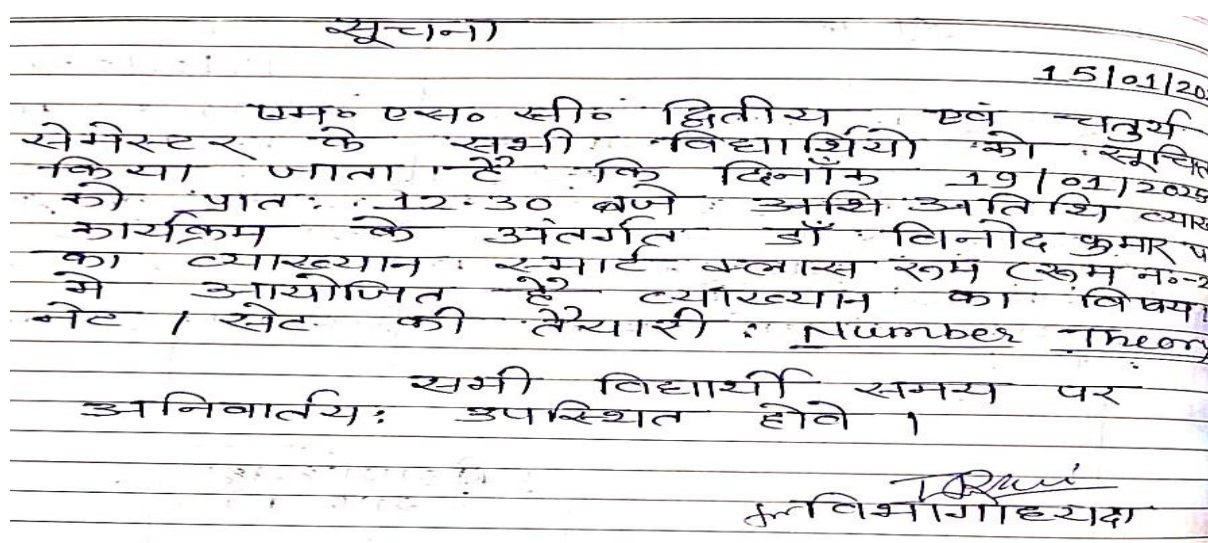 सूचना
15/01/20
एम० एस० सी० द्वितीय एवं चतुर्थ
सेमेस्टर के सभी विद्यार्थियो को सूचित
किया जाता है कि दिनाँक 19/01/2025
को प्रात: 12:30 बजे अतिथि व्याख
कार्यक्रम के अंतर्गत डॉ विनोद कुमार प
का व्याख्यान स्मार्ट क्लास रुम (रूम नं०-2
मे आयोजित है व्याख्यान का विषय
नेट / सेट की तैयारी : Number Theory
सभी विद्यार्थी समय पर
अनिवार्तय: उपस्थित होवे ।
विभागाध्यक्ष